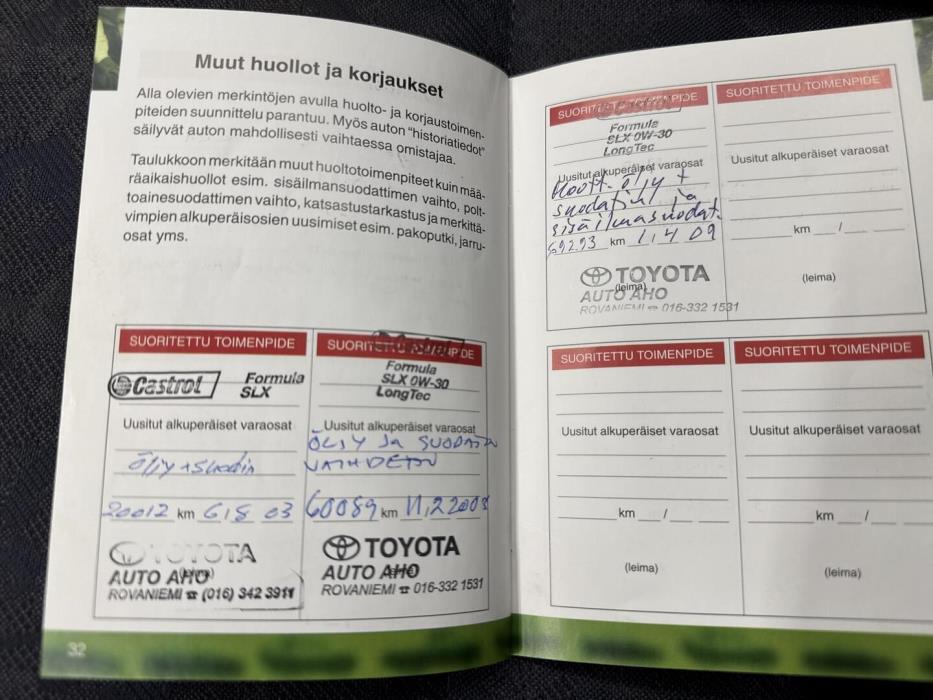 Muut huollot ja korjaukset
Alla olevien merkintöjen avulla huolto- ja korjaustoimen-
piteiden suunnittelu parantuu. Myös auton "historiatiedot"
säilyvät auton mahdollisesti vaihtaessa omistajaa.
Taulukkoon merkitään muut huoltotoimenpiteet kuin mää-
räaikaishuollot esim. sisäilmansuodattimen vaihto, polt-
toainesuodattimen vaihto, katsastustarkastus ja merkittä-
vimpien alkuperäisosien uusimiset esim. pakoputki, jarru-
osat yms.
SUORITETTU TOIMENPIDE
Castrol Formula
SLX
Uusitut alkuperäiset varaosat
Öljy + Suodin
20012 km 6/8 03
(leima)
TOYOTA
AUTO AHO
ROVANIEMI ☎ (016) 342 3911
SUORITETTU TOIMENPIDE
Castrol
Formula
SLX 0W-30
LongTec
Uusitut alkuperäiset varaosat
ÖLJY JA SUODATIN
VAIHDETTU
60089 km 11,2 2008
TOYOTA
AUTO AHO
ROVANIEMI ☎ 016-332 1531
32
SUORITETTU TOIMENPIDE
Formula
SLX 0W-30
LongTec
Uusitut alkuperäiset varaosat
Moott. öljy +
suodatin ja
sisäilmasuodat.
69293 km 1,4 09
TOYOTA
(leima)
AUTO AHO
ROVANIEMI ☎ 016-332 1531
SUORITETTU TOIMENPIDE
Uusitut alkuperäiset varaosat
km /
(leima)
SUORITETTU TOIMENPIDE
Uusitut alkuperäiset varaosat
km /
(leima)
SUORITETTU TOIMENPIDE
Uusitut alkuperäiset varaosat
km /
(leima)